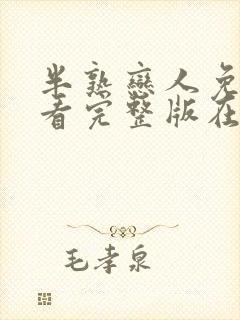 半熟恋人免
看完整版在
毛孝泉